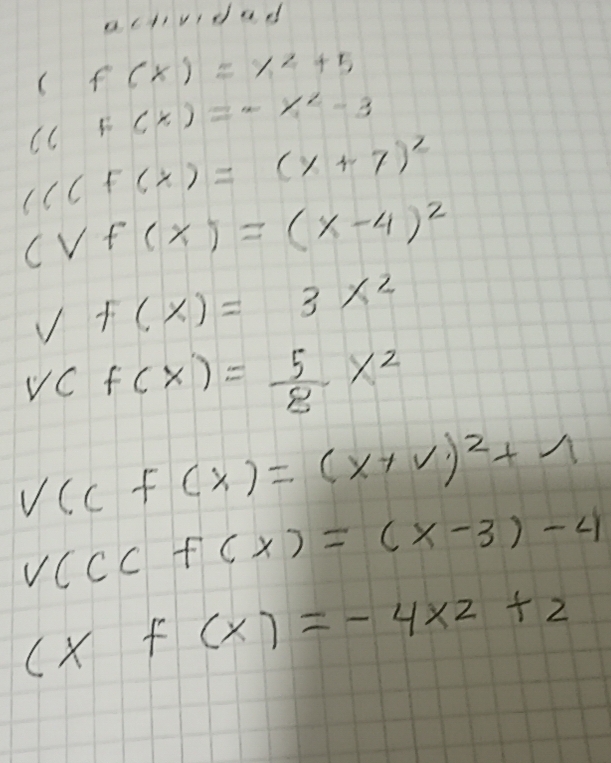 actividad
( f(x) = x² + 5
(( f(x) = - x² - 3
((( f(x) = (x + 7)²
(V f(x) = (x - 4)²
V f(x) = 3 x²
V( f(x) = 5/8 x²
V(( f(x) = (x + V)² + 1
V((( f(x) = (x - 3) - 4
(X f(x) = - 4x2 + 2